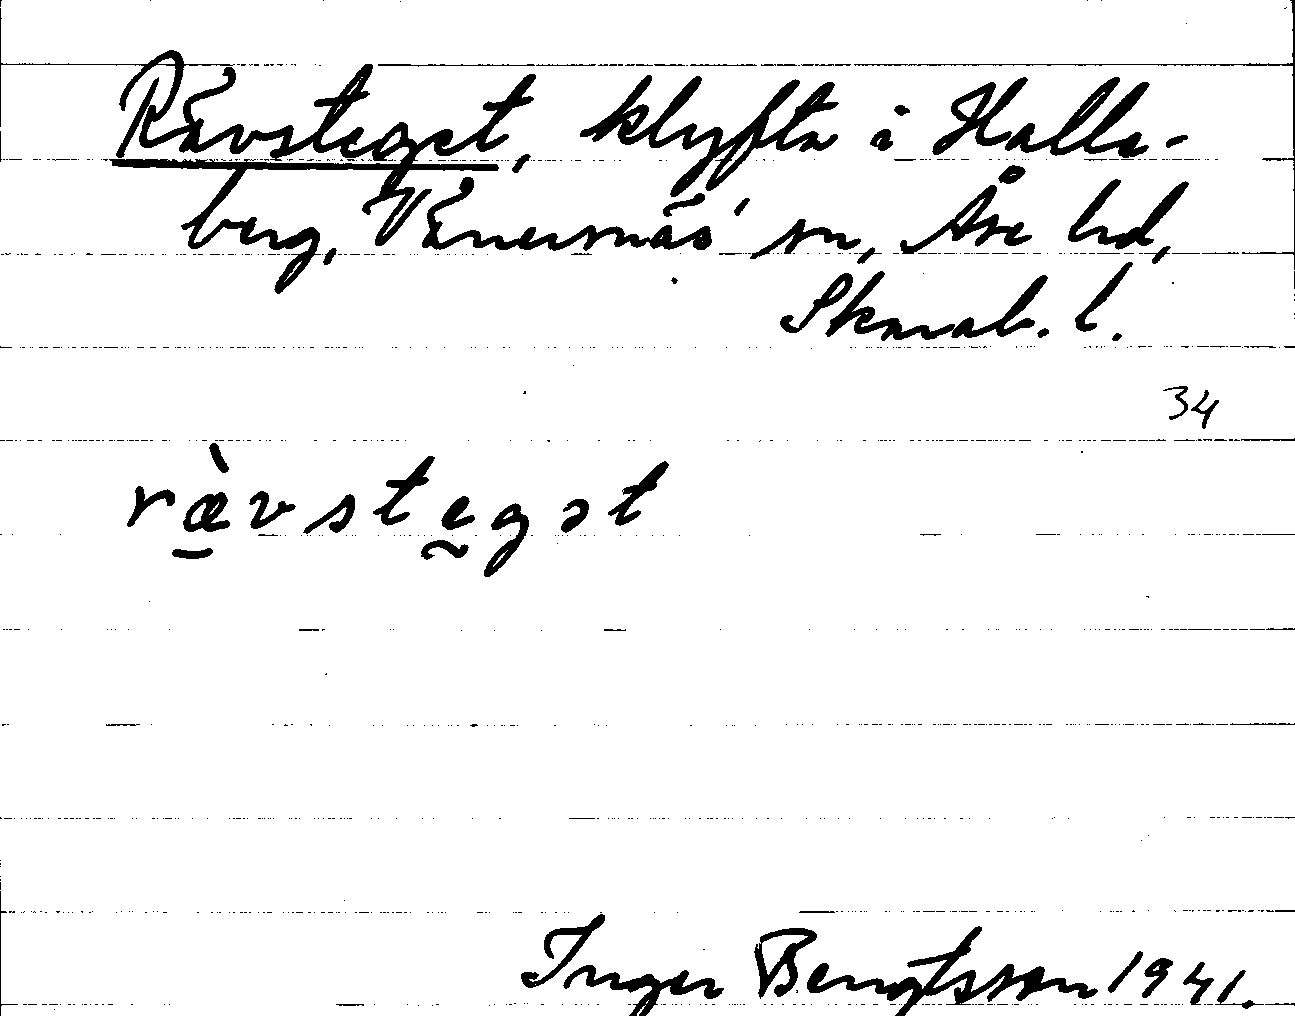 Rävsteget, klyfta i Halle-
berg, Vänersnäs' sn, Åse hd,
Skarab. l.
34
rævstegət
Inger Bengtsson 1941.